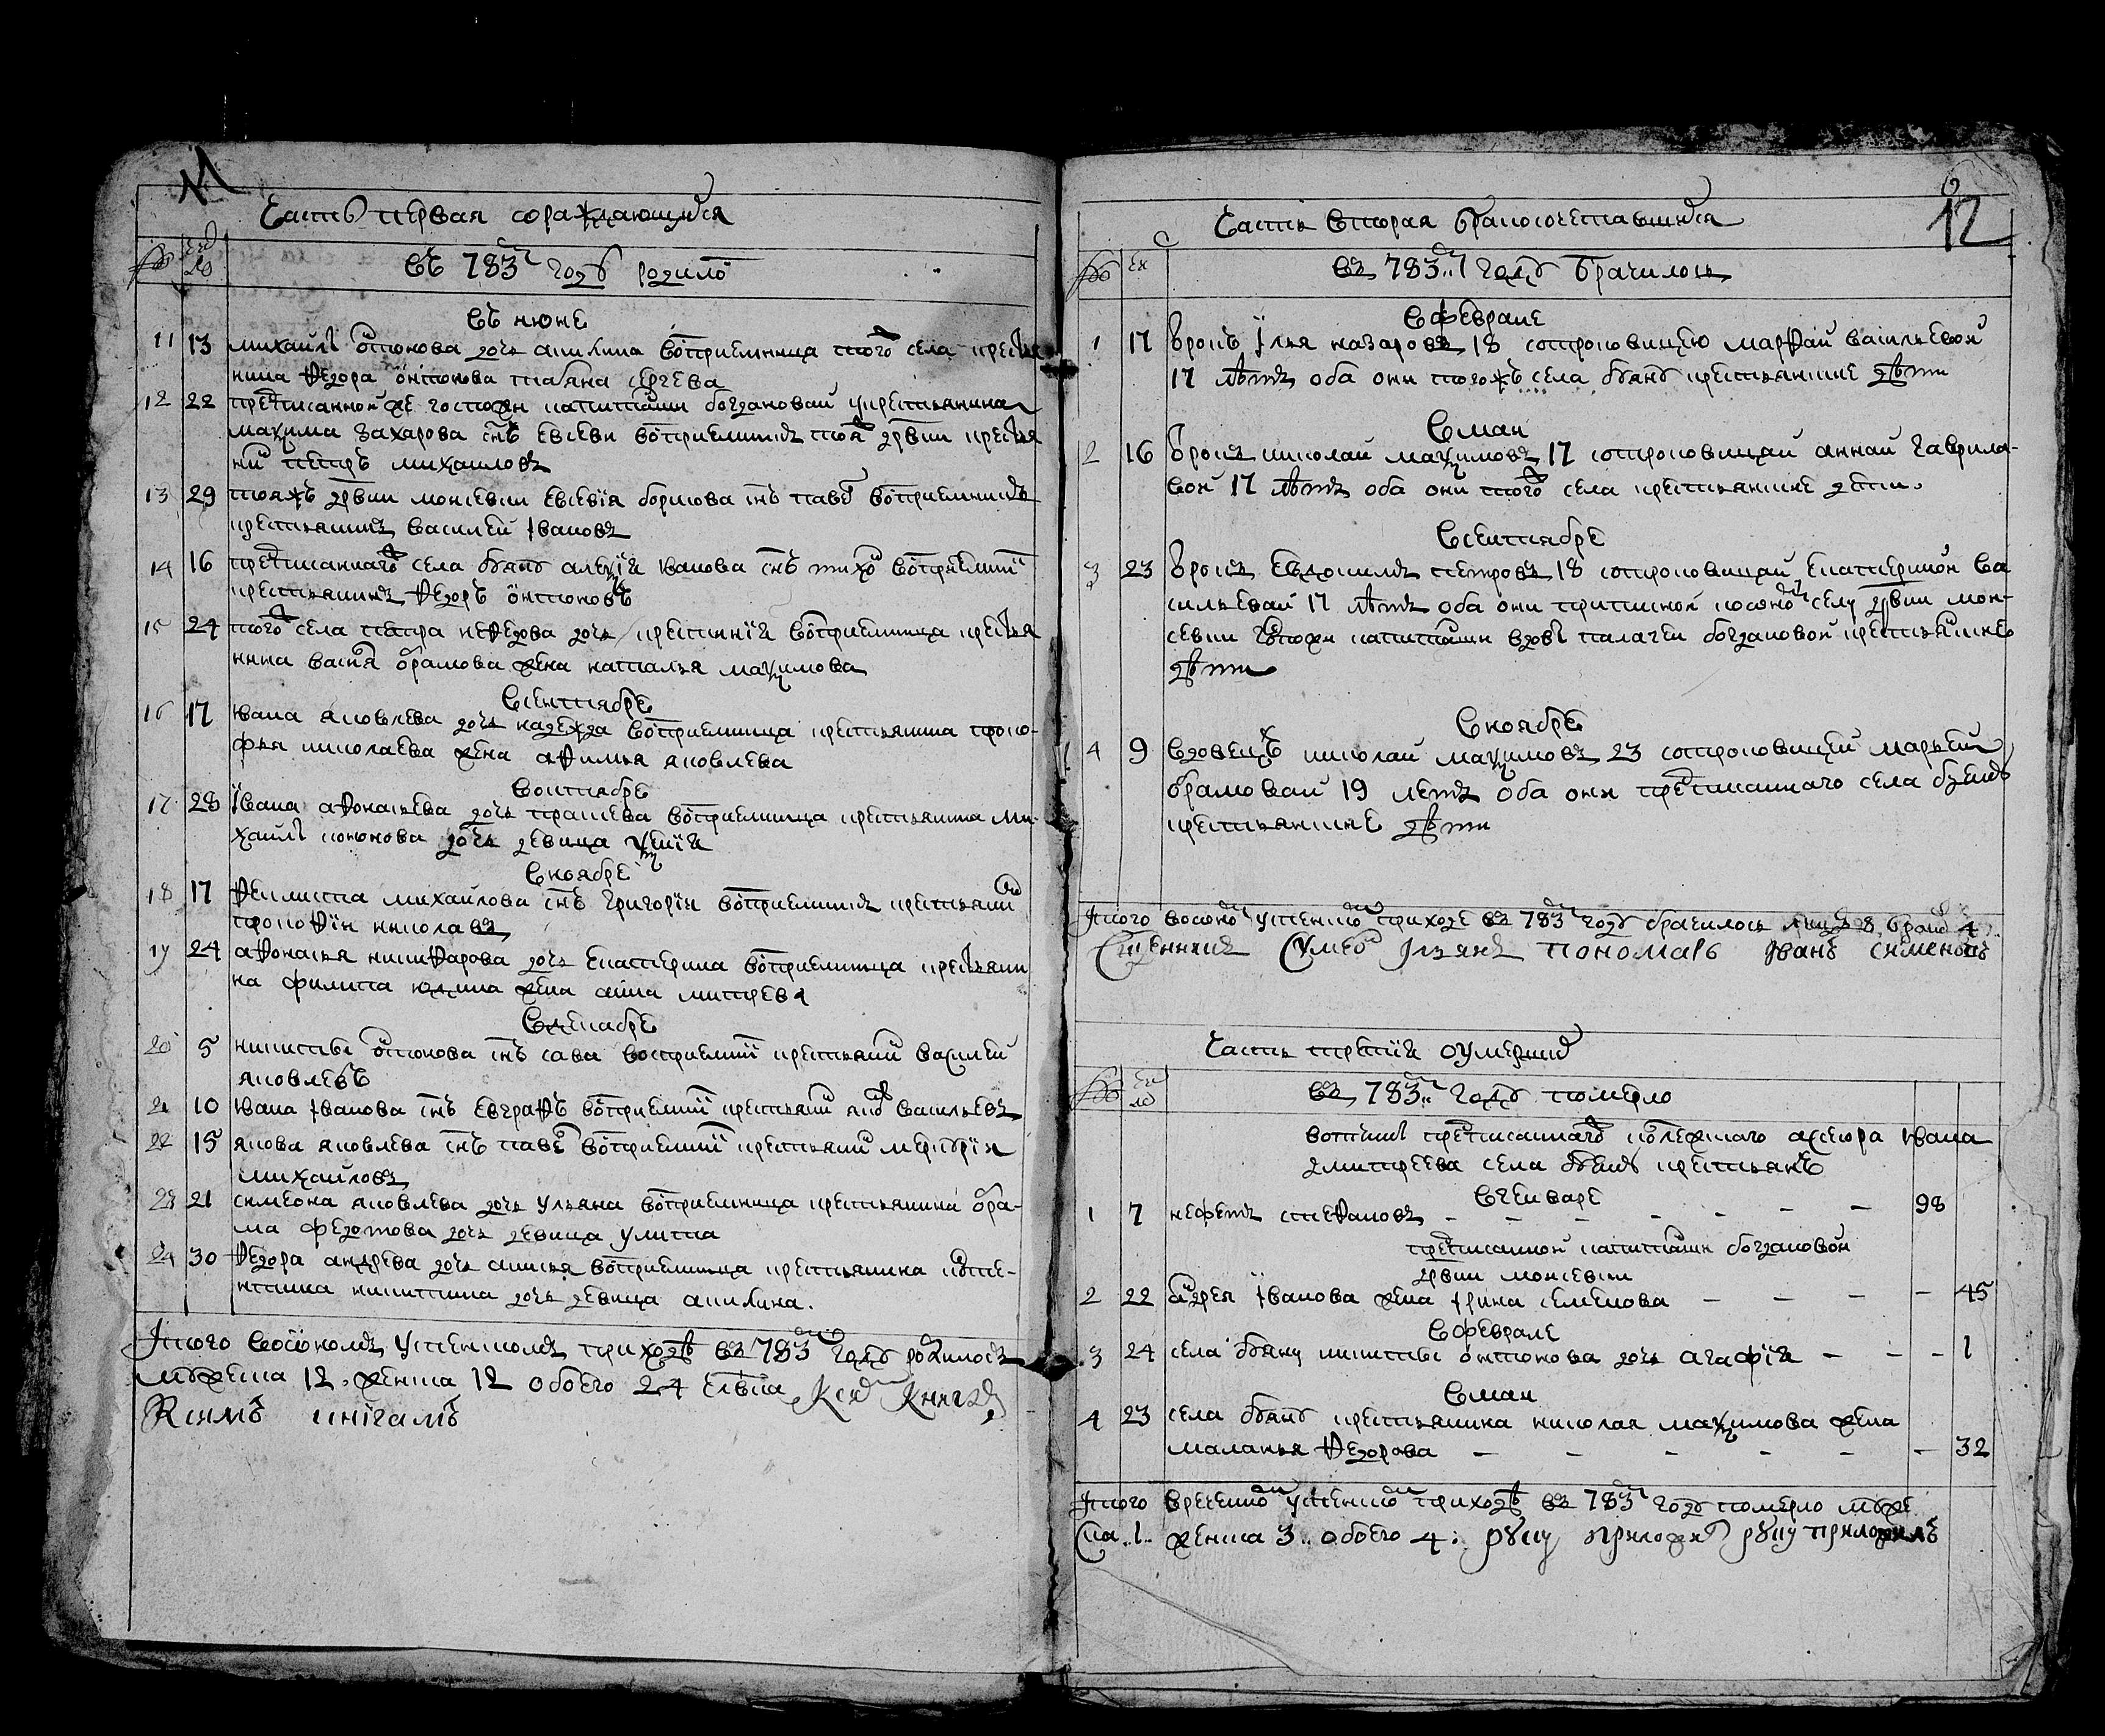 Часть первая ораждающихся
въ 783м году родило
въ июне
11 13 михаила онтонова дочь акилина востриемница того села крестья
нина федора онтонова татьяна сергеева
12 22 предписанной же госпожи капитанши богдановай у крестьянина
максима захарова снъ евсеви востриемникъ тояж дрвни крестья
нинъ петръ михаиловъ
13 29 тояжъ дрвни моисевки евсевия борисова снъ павелъ востриемникъ
крестьянинъ василей ивановъ
14 16 предписаннаго села алексия иванова снъ тихо востриемни
крестьянинъ федоръ онтоновъ
15 24 того села петра нефедова дочь востриемница крестья
нина василя обрамова жена наталья максимова
Всентябре
16 17 ивана яковлева дочь надежда востриемница крестьянина проко-
фья николаева жена афимья яковлева
Воктябре
17 28 ивана афонасьева дочь парасева востриемница крестьянина ми-
хаила дочь девица
Вноябре
18 17 филипа михайлова снъ григорiи востриемникъ крестьяни
прокофiи николавъ
19 24 афонасья никифарова дочь екатерина востриемница крестьяни
на филипа жена анна митрева
Вдекабре
20 5 никиты онтонова снъ сава востриемни крестьяни василей
яковлевъ
21 10 ивана иванова снъ евграфъ востриемни крестьяни яков васильевъ
22 15 якова яковлева снъ павел востриемни крестьяни меркурiи
михайловъ
23 21 симеона яковлева дочь ульяна востриемница крестьянина обра-
ма федотова дочь девица улита
24 30 федора андрева дочь анисья востриемница крестьянина
никитина дочь девица акилина.
Итого восономъ усненскомъ приходѣ въ 783м году родилось
мужеска 12. женска 12 обоего 24 Ксимъ Книгамъ
Ксимъ книгамъ
12
Часть вторая бракосочетавшихся
въ 783м году брачилось
Вфеврале
1 17 Брокъ Илья назаровъ 18 сотроковицею марфай васильевой
17 лѣтъ оба они тогожъ села крестьянские дѣти
Вмаи
2 16 Брокъ николай максимовъ 17 сотроковицай аннай гаврила-
вой 17 лѣтъ оба они того села крестьянские дети.
Всентябре
3 23 Брокъ евдокимъ петровъ 18 сотроковицай екатериной ва
сильевай 17 лѣтъ оба они приписной селу дрвни мои-
севки госпожи капитанши вдовы палагеи богдановой крестьянские
дѣти
Вноябре
4 9 Вдовецъ николай максимовъ 23 сотроковицей марьей
обрамовай 19 летъ оба они предписаннаго села
крестьянские дѣти
Итого усненском приходе въ 783м году брачилось лицъ 8. браков 4
Сщенникъ Ильинъ пономарь Иванъ Сименовъ
Часть третiя оумерших
въ 783м году померло
вотчины предписаннаго колежского асесора ивана
дмитреева села крестьянъ
Вгенваре
1 7 нефетъ стефановъ 98
предписанной капитанши богдановой
дрвни моисевки
2 22 андрея иванова жена ирина семенова 45
Вфеврале
3 24 села никиты онтонова дочь агафiя 1
Вмаи
4 23 села крестьянина николая максимова жена
маланья федорова 32
Итого вреченном усненском приходѣ въ 783м году померло муже
ска .1. женска 3.. обоего 4: руку приложилъ руку приложилъ